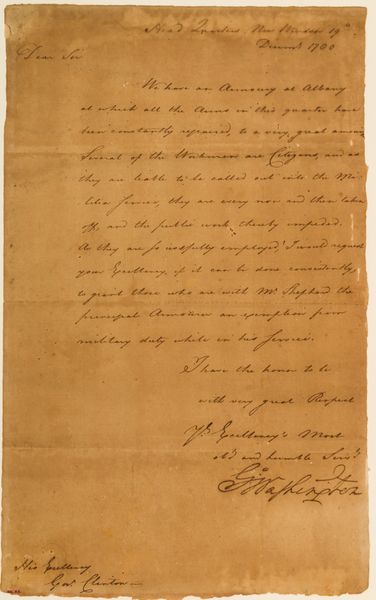 Head Quarters New Windsor 19th
Decemr 1780
Dear Sir
We have an Armoury at Albany
at which all the Arms in this quarter have
been constantly repaired, to a very great amount
Several of the Workmen are Citizens, and as
they are liable to be called out into the Mi-
litia service, they are every now and then taken
off, and the public work thereby impeded.
As they are so usefully employed, I would request
your Excellency, if it can be done consistently,
to grant those who are with Mr Shephard the
principal Armourer an exemption from
military duty while in his service.
I have the honor to be
with very great Respect
Yr Excellency's Most
obt and humble Servt
Go: Washington
His Excellency
Govr Clinton